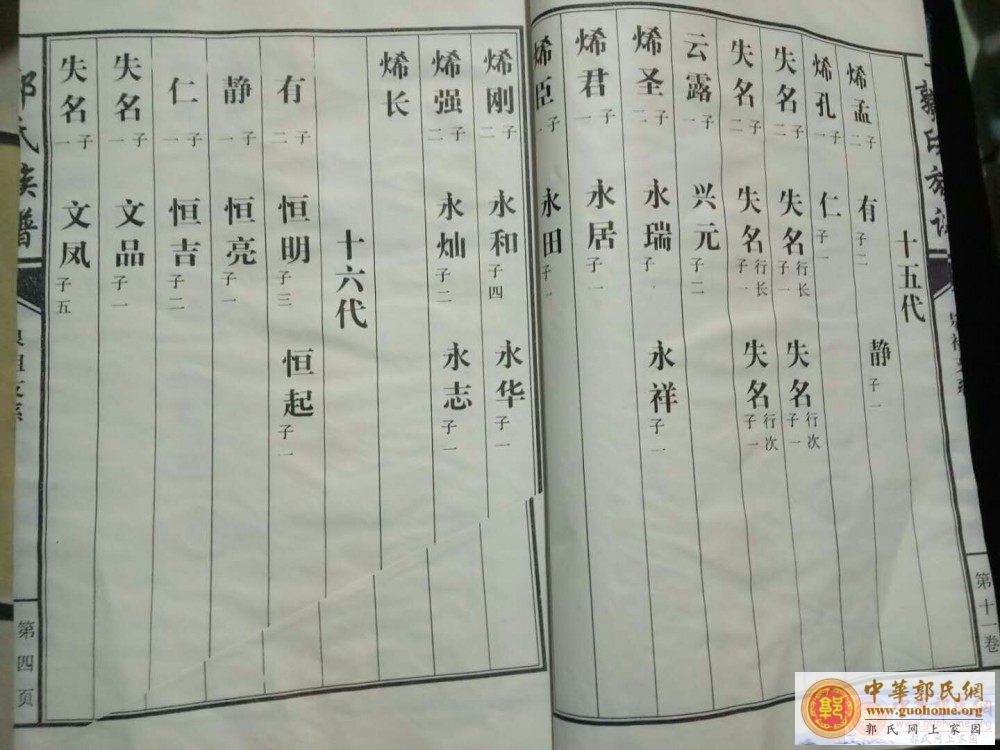 郭氏族谱
第十一卷
十五代
烯孟 二子 有 子二 静 子一
烯孔 一子 仁 子一
失名 二子 失名 行长 子一 失名 行次 子一
失名 二子 失名 行长 子一 失名 行次 子一
云露 一子 兴元 子二
烯圣 二子 永瑞 子一 永祥 子一
烯君 一子 永居 子一
烯臣 一子 永田 子一
烯刚 二子 永和 子四 永华 子一
烯强 二子 永灿 子二 永志 子一
烯长
十六代
有 二子 恒明 子三 恒起 子一
静 一子 恒亮 子一
仁 一子 恒吉 子二
失名 一子 文品 子一
失名 一子 文凤 子五
郭氏族谱
第四页
中華郭氏網
www.guohome.org
郭氏网上家园